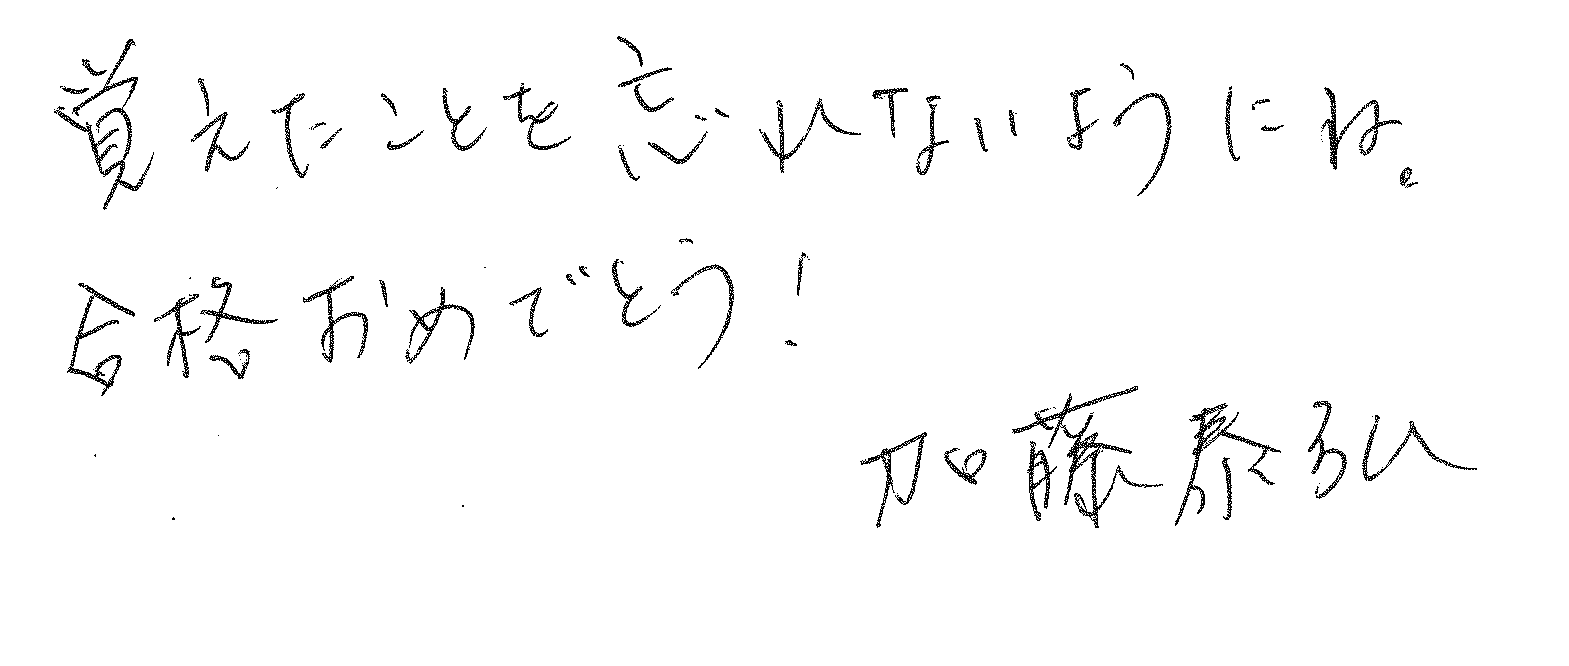 覚えたことを忘れないようにね。
合格おめでとう!
加藤泰弘